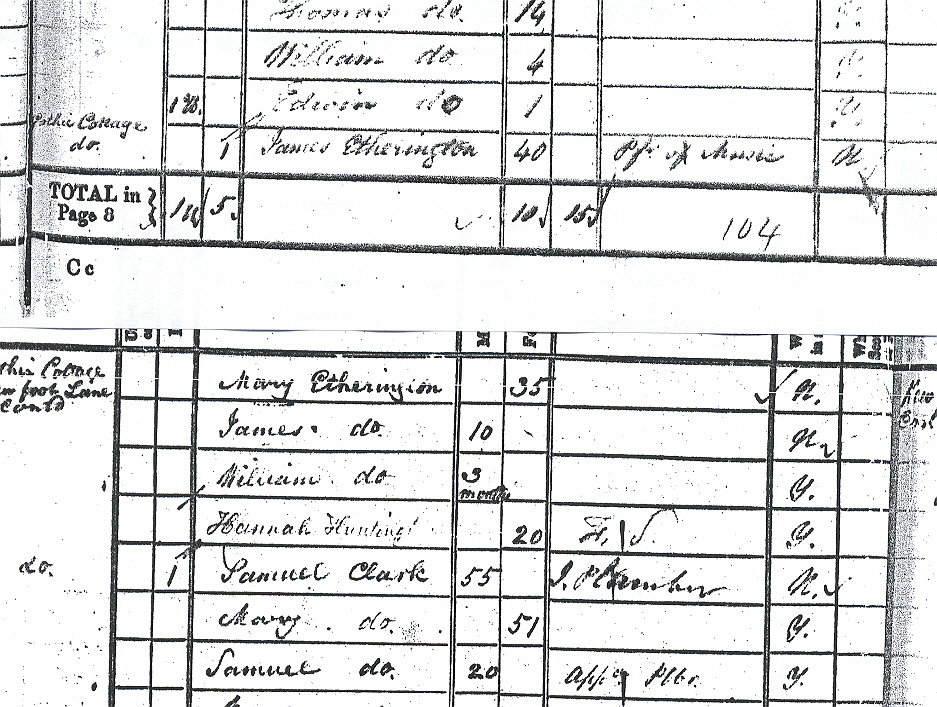 Thomas do 14 Y.
William do 4 Y.
1 B. Edwin do 1 Y.
Gothic Cottage
do. 1 James Etherington 40 Pfr of Music N
TOTAL in
Page 8 } 5 10 15 104
C c
Cottage
foot Lane
Contd
Mary Etherington 35 N.
James do. 10 N
William do 3 months Y.
Hannah 20 F. S. Y.
do. 1 Samuel Clark 55 J. Plumber N.
Mary do. 51 Y.
Samuel do. 20 App. Plbr. Y.